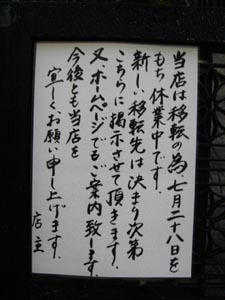 当店は移転の為、七月二十八日を
もち休業中です。
新しい移転先は決まり次第
こちらに掲示させて頂きます。
又、ホームページでもご案内致します。
今後とも当店を
宜しくお願い申し上げます。
店主